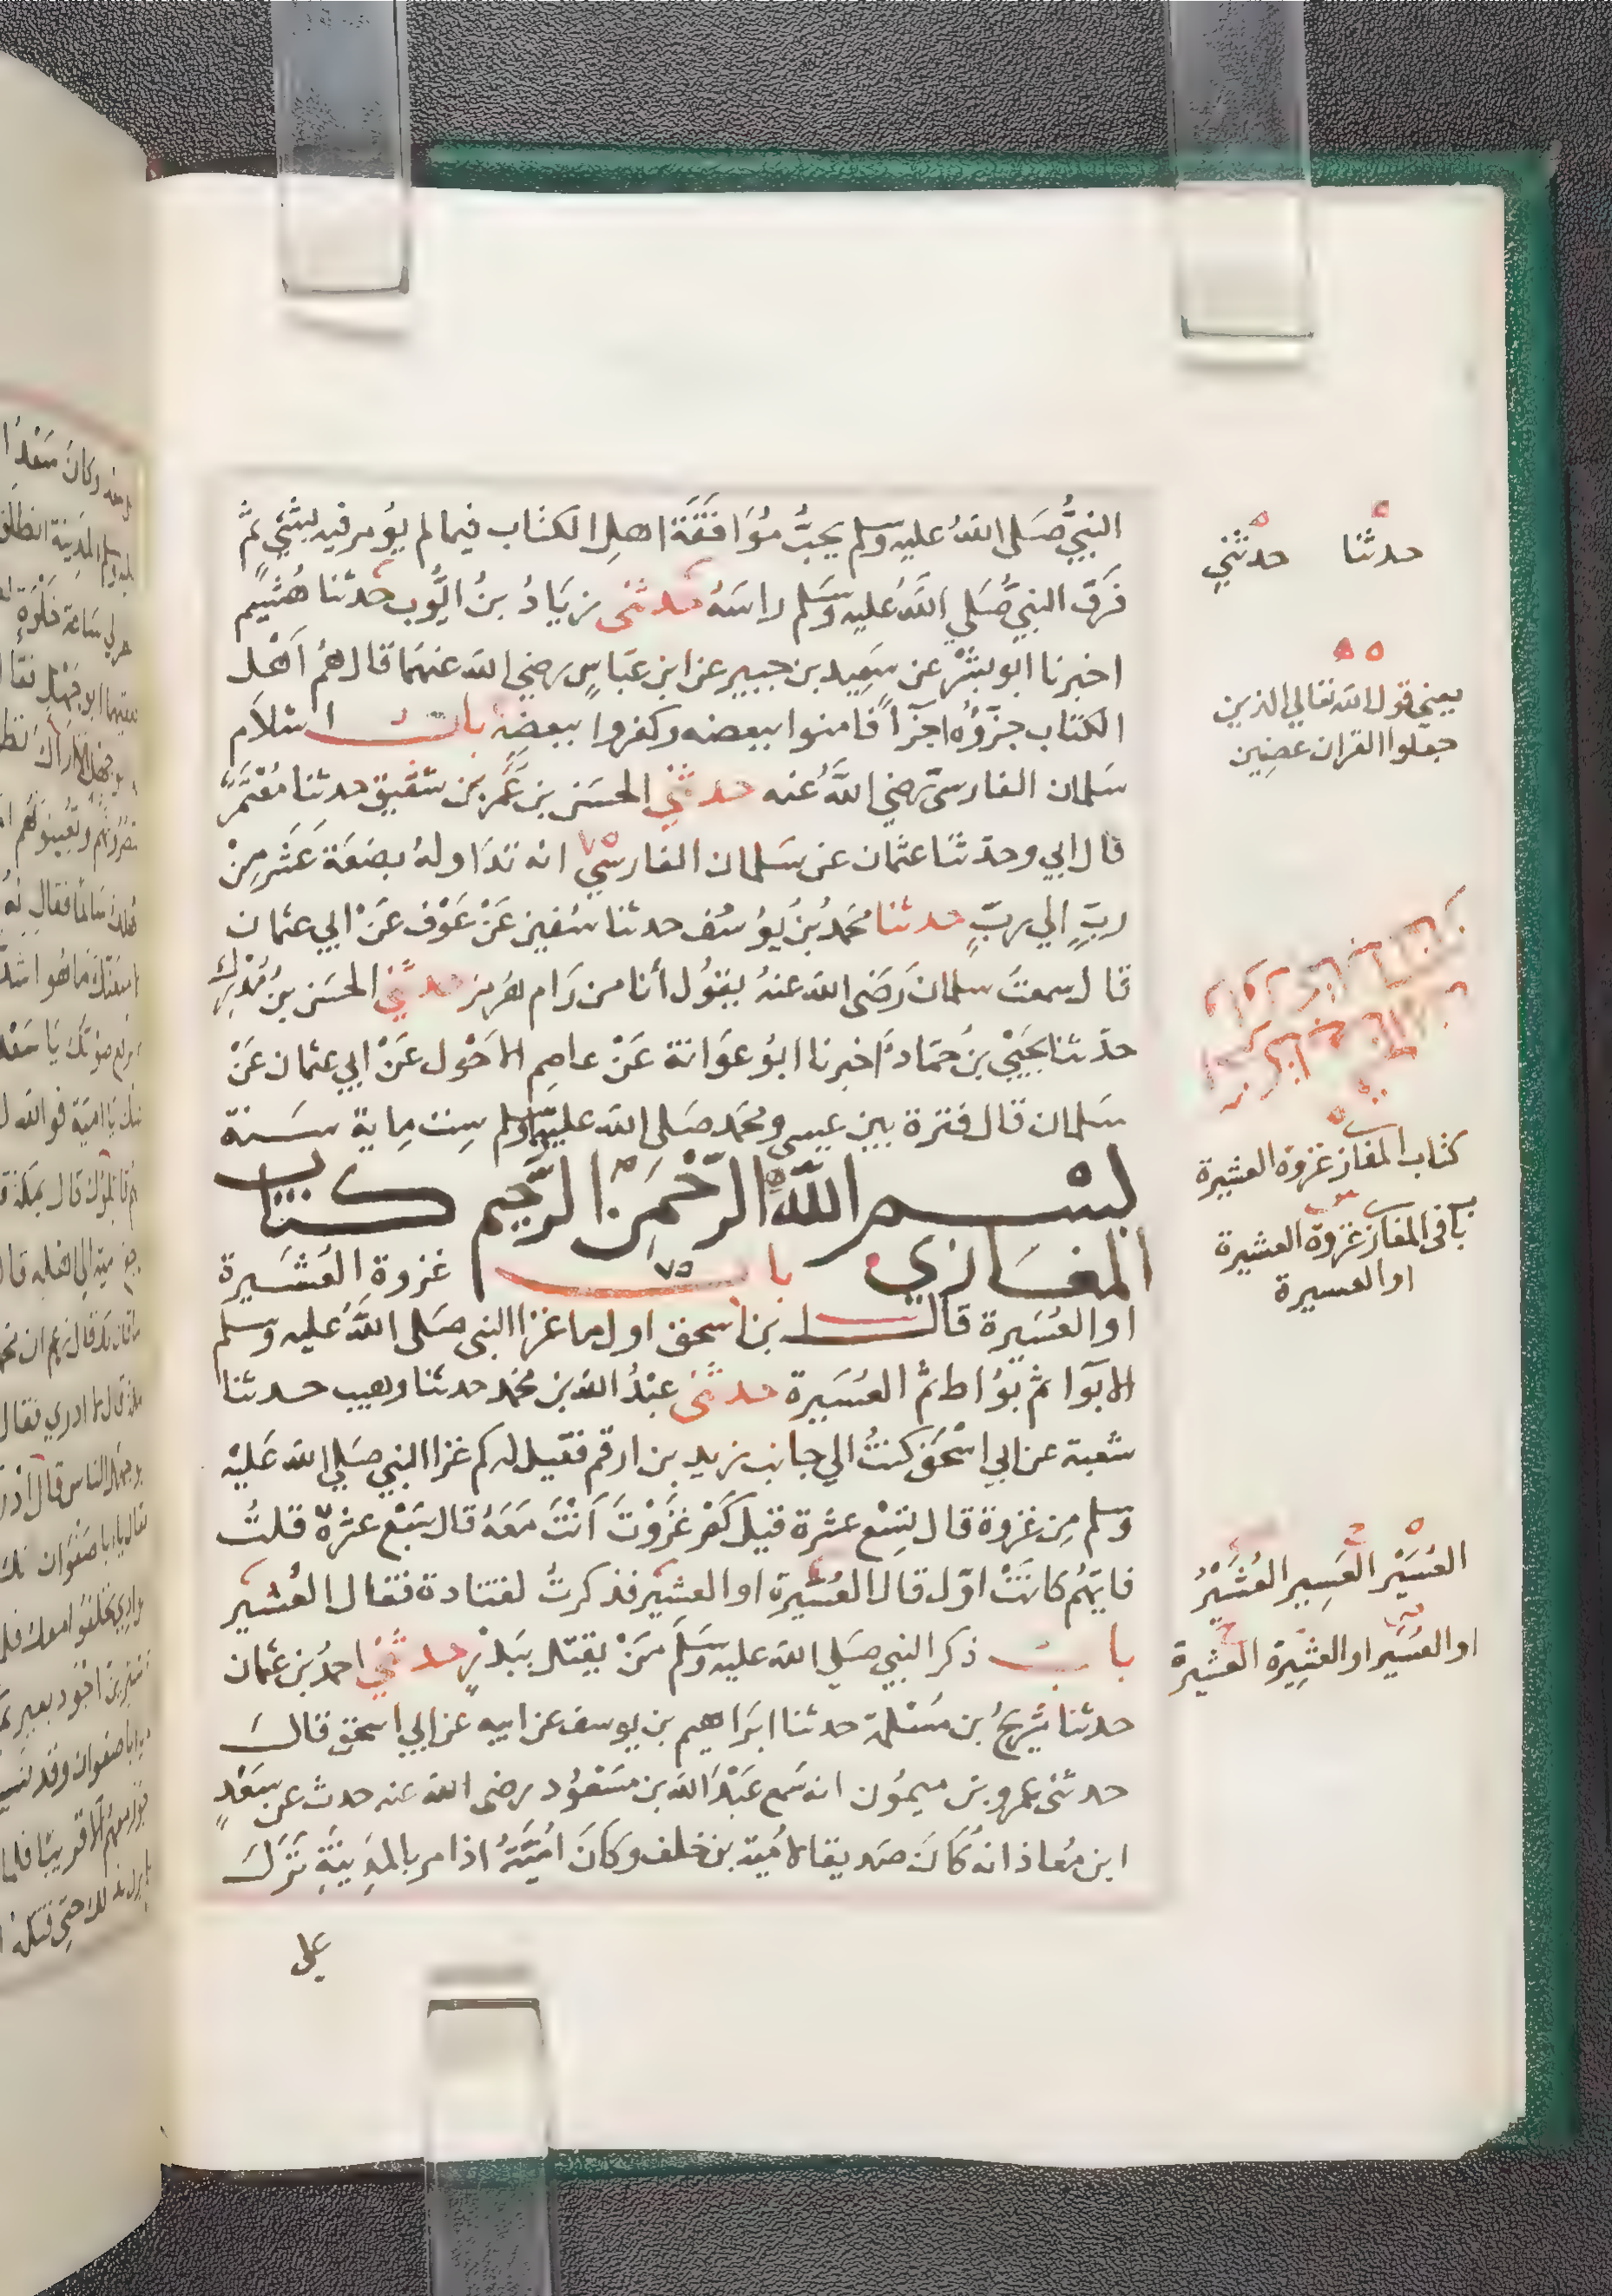 النبيُّ صَلى اللهُ عليه وسلم يحبُّ مُوَافَقَةَ اهلِ الكتاب فيما لم يؤمر فيه بشيءٍ ثُمَّ
فَرَقَ النبيُّ صَلي اللهُ عليه وسَلم راسَهُ حدثنى زيَادُ بنُ ايُّوب حدثنا هُشَيم
اخبرنا ابو بِشْرٍ عن سَعِيد بن جبير عن ابن عبَاسٍ رضي الله عنهما قال هُم اَهْل
الكتاب جزَّؤُه اجزَآً فامنوا ببعضه وكفروا ببعضِهِ باب اسْلاَم
سَلمان الفارسيّ رضي اللهُ عنه حدثني الحسَن بن عُمَر بن شقيق حدثنا مُعْتَمَرٌ
قال ابي وحدّثنا عثمان عن سَلمان الفارسي انه تدَاولهُ بضعَة عَشَر مِنْ
ربٍّ الي ربٍّ حدثنا محَمدُ بنُ يُوسُف حدثنا سُفين عَنْ عَوْف عَنْ ابي عثمان
قال سمعتَ سلمانَ رَضى الله عنهُ يقوُل أنا من رَام هُرمز حدثني الحسَن بنُ مُدْرِك
حدّثنا يحيَيْ بن حمَاد اخبرنا ابوُ عوَانة عَنْ عاصِم الاحْول عَنْ ابي عثمان عَنْ
سَلمان قال فترة بين عيسي ومحَمد صَلى الله عليهما وسلم ست ماية سَنة
بسْم اللهِ الرَّحْمَنِ الرَّحِيم كتاب
المغَازي باب غزوة العُشَيرة
او العُسَيرة قال بن اسحق اول ما غزا النبى صَلى اللهُ عليه وسَلم
الابوآ ثم بَوُاط ثُمَّ العُسَيرة حدثنى عبْدُ الله بن محمد حدثنا وهيب حدثنا
شعبة عن ابي اسْحَق كنتُ الي جانب زيد بن ارقم فقيل له كم غزا النبي صَلي الله عَليْه
وسلم مِن غزوة قال تِسْع عشرة قيل كَم غزَوْتَ اَنْتَ مَعَهُ قال سَبْع عشرة قلتُ
فايّهُم كانَتْ اوّل قال العُسَيرة او العشِير فذكرتُ لقتادة فقال العُشَير
باب ذكر النبي صَلي الله عليه وسَلَّم مَنْ يقتَل ببَدْرٍ حدثنى احمدُ بن عثمان
حدثنا شُريحُ بن مَسْلمة حدثنا ابرَاهيم بن يوسف عن ابيه عن ابي اسحق قالَ
حدثنى عمرو بن ميموُن انه سَمع عَبْدَ الله بن مَسْعوُد رضى الله عنه حدث عن سَعْدٍ
ابن مُعاذ انهُ كَانَ صَديقا لامُية بن خلف وكَانَ امُيَّةُ اذا مر بالمدِينَةِ نَزَلَ
على
حدثنا حدثني
يعني قول الله تعالي الذين
جعلوا القران عضِين
كتاب المغازي غزوة العشيرة
باب في المغازي غزوة العشيرة
او العسيرة
العُسَيْر العَسِير العُشَيْرُ
او العُسَير او العشِيرة العشيرة